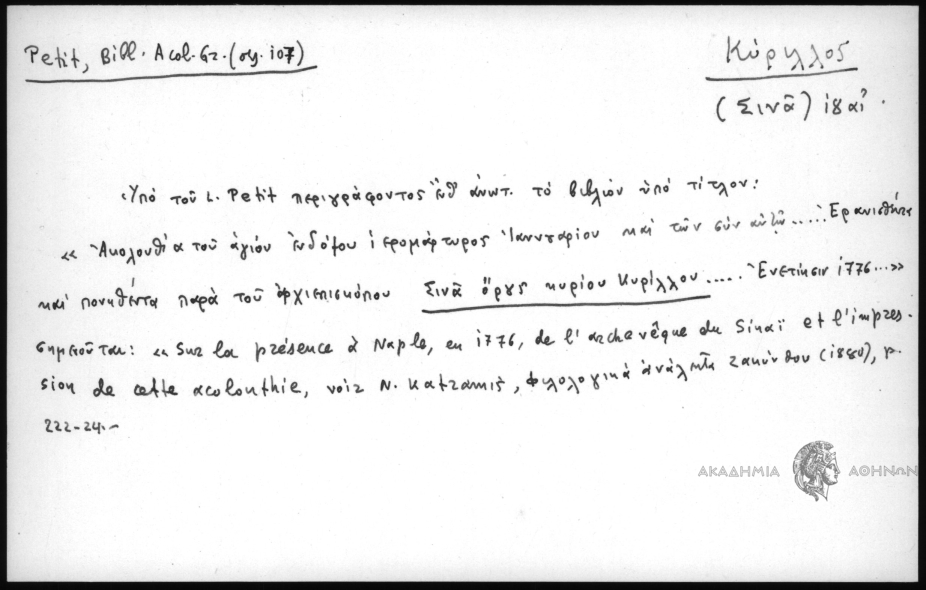 Petit, Bibl. Acol. Gr. (σγ. 107)
Κύριλλος
(Σινᾶ) ι8αἰ.
Ὑπό τοῦ L. Petit περιγράφοντος ἔνθ' ἀνωτ. τό βιβλίον ὑπό τίτλον:
« Ἀκολουθία τοῦ ἁγίου ἐνδόξου ἱερομάρτυρος Ἰαννουαρίου καί τῶν σύν αὐτῷ..... Ἐρανισθήντα
καί πονηθέντα παρά τοῦ ἀρχιεπισκόπου Σινᾶ ὄρους κυρίου Κυρίλλου..... Ἐνετίησιν 1776...»
σημειοῦται: « Sur la présence à Naple, en 1776, de l'archevêque du Sinaï et l'impres-
sion de cette acolouthie, voir N. Katramis, Φιλολογικά ἀνάλεκτα Ζακύνθου (1880), p.
222-24.-
ΑΚΑΔΗΜΙΑ ΑΘΗΝΩΝ